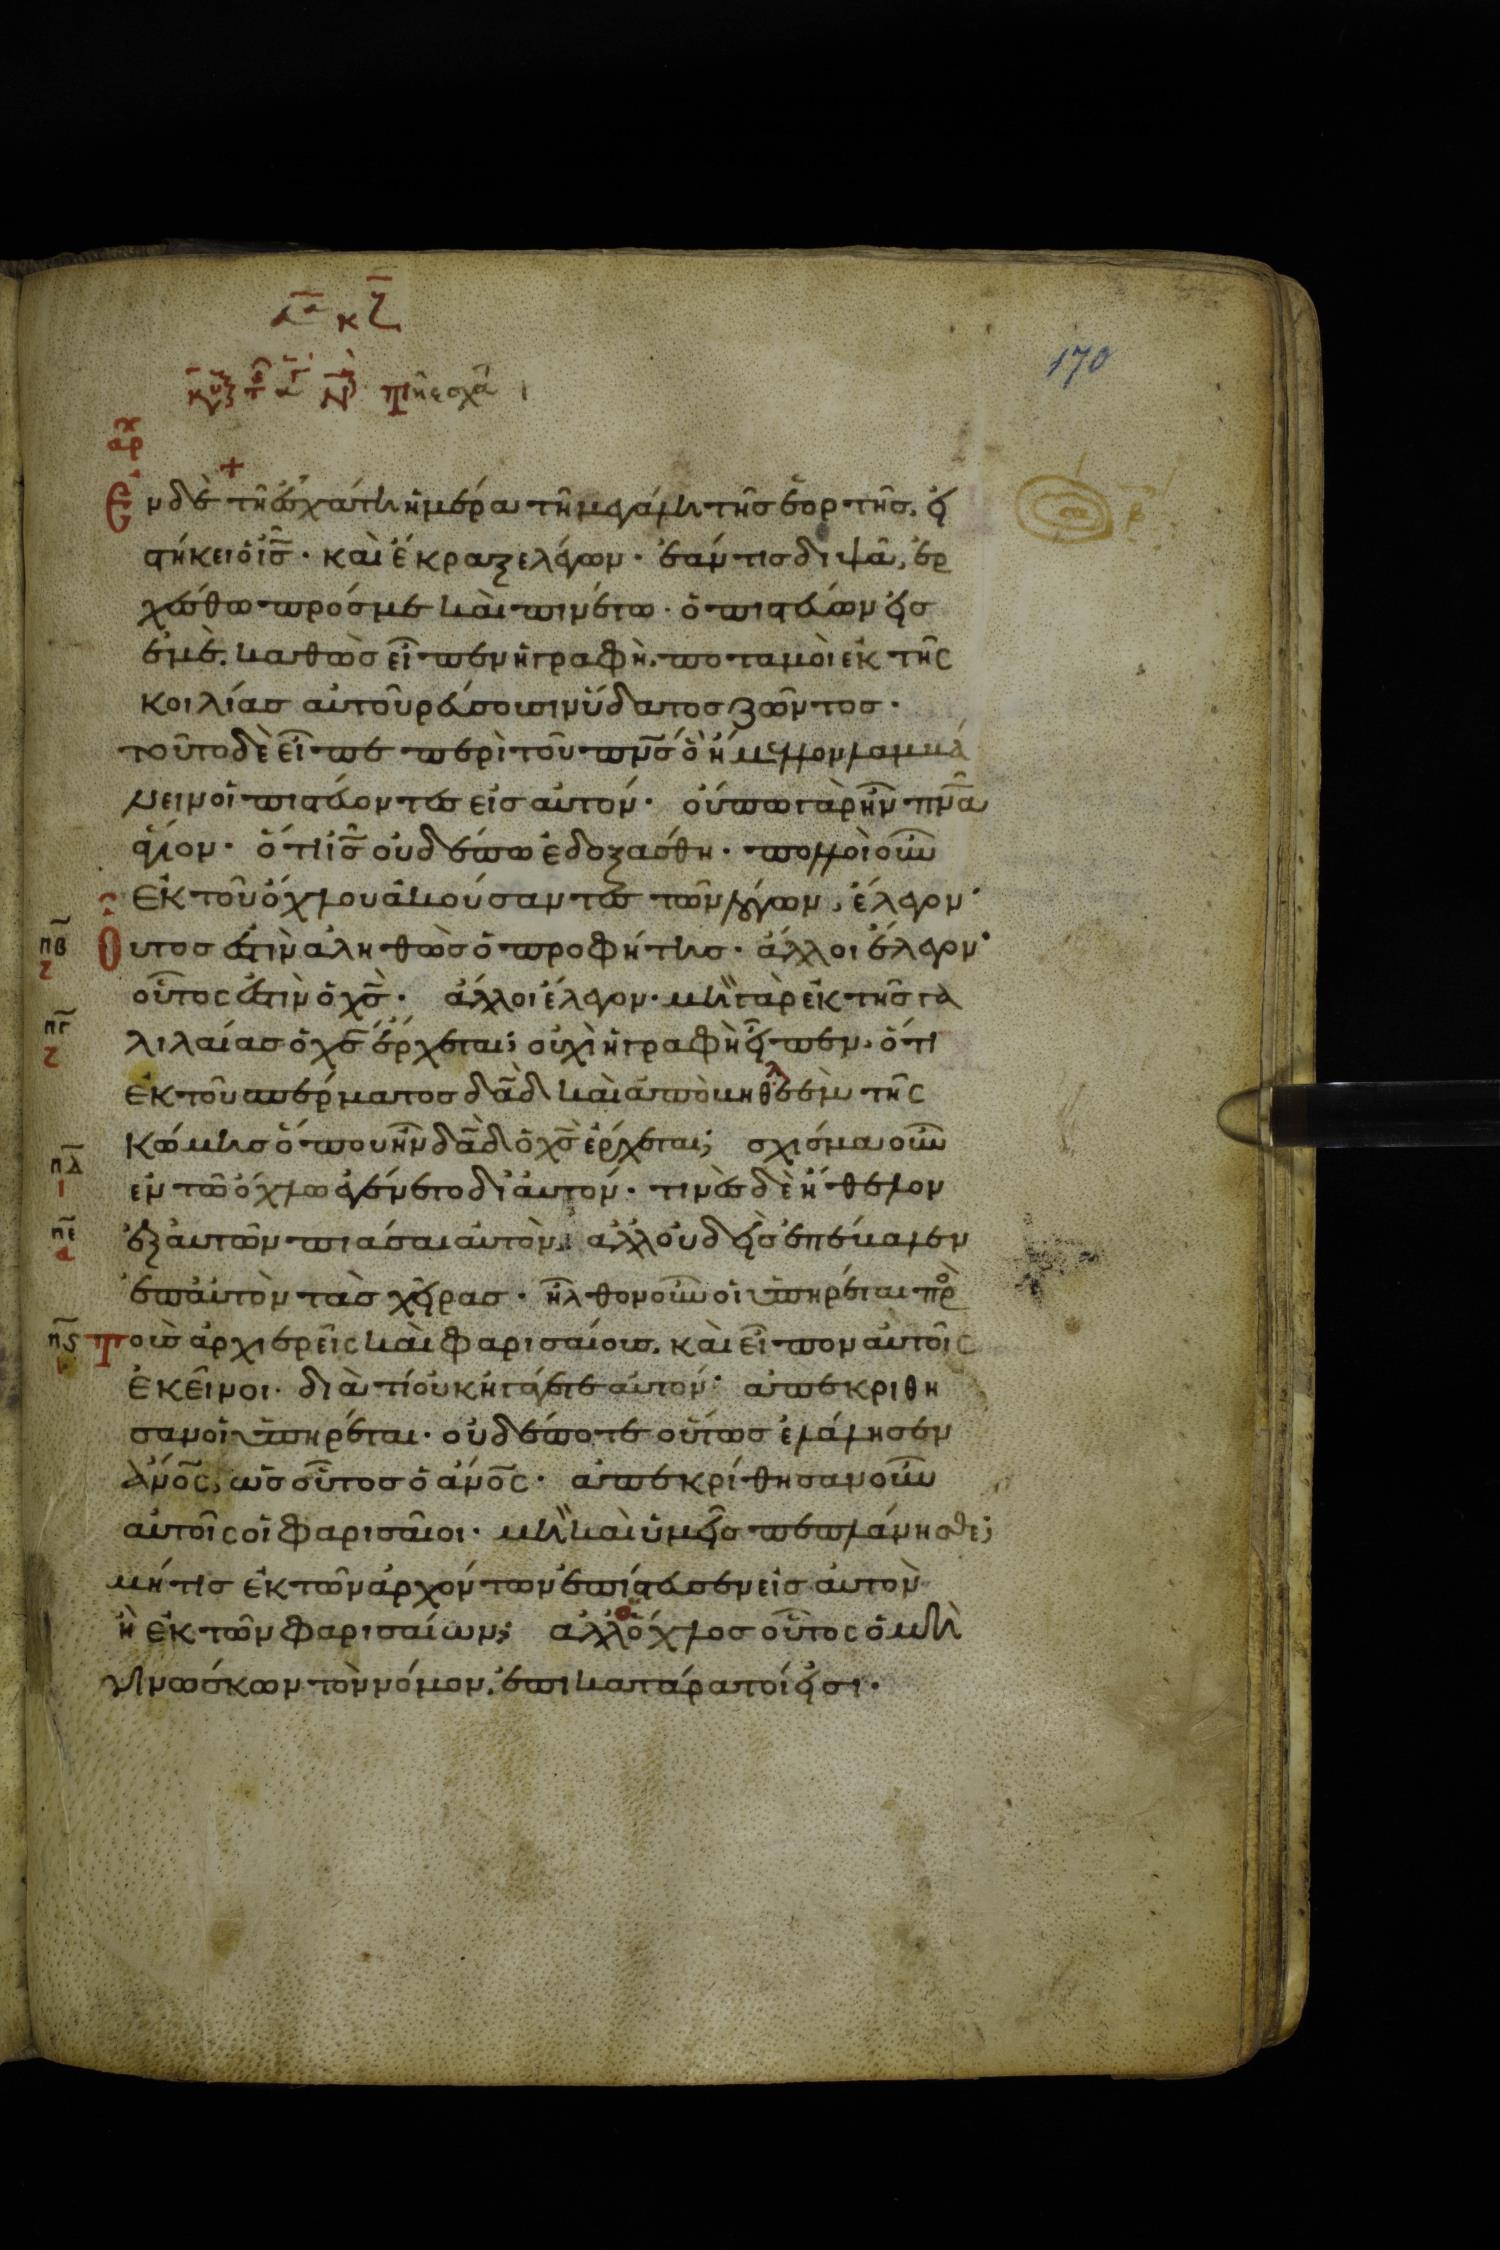 170
Ἐν δὲ τῆ ἐσχάτη ἡμέρα τῆ μεγάλη τῆς ἑορτῆς, εἱ
στήκει ὁ ἰς̅· καὶ ἔκραζε λέγων· ἐάν τις διψᾶ, ἐρ
χέσθω πρός με καὶ πινέτω· ὁ πιστεύων εἰς
ἐμὲ, καθὼς εἶπεν ἡ γραφὴ, ποταμοὶ ἐκ τῆς
κοιλίας αὐτοῦ ῥεύσουσιν ὕδατος ζῶντος·
τοῦτο δὲ εἶπε περὶ τοῦ πν̅ς ὃ ἤμελλον λαμβά
νειν οἱ πιστεύοντες εἰς αὐτόν· οὔπω γὰρ ἦν πν̅α
ἅγιον· ὅτι ἰς̅ οὐδέπω ἐδοξάσθη· πολλοὶ οὖν
ἐκ τοῦ ὄχλου ἀκούσαντες τῶν λόγων, ἔλεγον·
πβ Οὗτος ἐστὶν ἀληθῶς ὁ προφήτης· ἄλλοι ἔλεγον·
οὗτος ἐστὶν ὁ χς̅· ἄλλοι ἔλεγον· μὴ γὰρ ἐκ τῆς γα
πγ λιλαίας ὁ χς̅ ἔρχεται; οὐχὶ ἡ γραφὴ εἶπεν, ὅτι
ἐκ τοῦ σπέρματος δα̅δ καὶ ἀπὸ βηθλεὲμ τῆς
κώμης ὅπου ἦν δα̅δ ὁ χς̅ ἔρχεται; σχίσμα οὖν
πδ ἐν τῶ ὄχλω ἐγένετο δι' αὐτόν· τινὲς δὲ ἤθελον
πε ἐξ αὐτῶν πιάσαι αὐτὸν, ἀλλ' οὐδεὶς ἐπέβαλεν
ἐπ' αὐτὸν τὰς χεῖρας· ἦλθον οὖν οἱ ὑπηρέται πρὸ
πϛ τοὺς ἀρχιερεῖς καὶ φαρισαίους, καὶ εἶπον αὐτοῖς
ἐκεῖνοι· διὰ τί οὐκ ἠγάγετε αὐτόν· ἀπεκρίθη
σαν οἱ ὑπηρέται· οὐδέποτε οὕτως ἐλάλησεν
ἄνος̅, ὡς οὗτος ὁ ἄνος̅· ἀπεκρίθησαν οὖν
αὐτοῖς οἱ φαρισαῖοι· μὴ καὶ ὑμεῖς πεπλάνησθε;
μή τις ἐκ τῶν ἀρχόντων ἐπίστευσεν εἰς αὐτὸν
ἢ ἐκ τῶν φαρισαίων; ἀλλ' ὁ ὄχλος οὗτος ὁ μὴ
γινώσκων τὸν νόμον, ἐπικατάρατοί εἰσι·